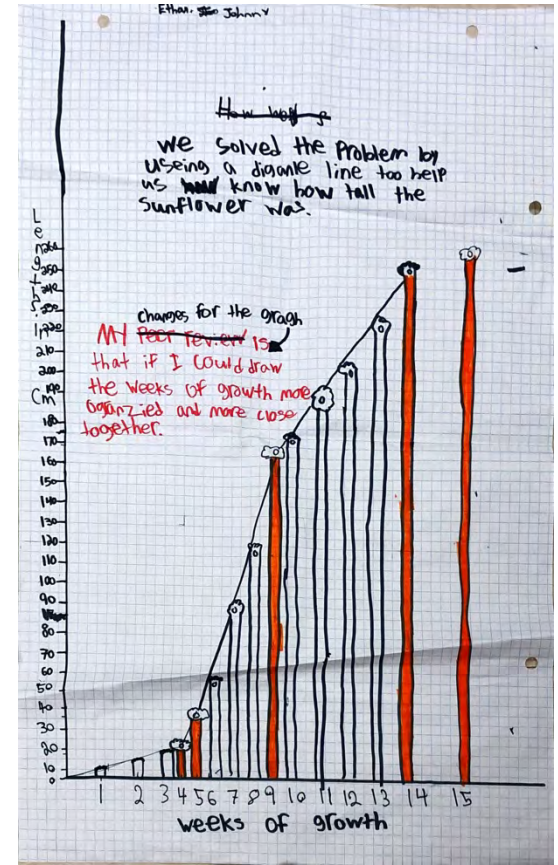 Ethan. Johnny
How
we solved the Problem by
useing a diganle line too help
us know how tall the
sunflower was.
changes for the gragh
My Peer review is
that if I could draw
the weeks of growth more
oganzied and more close
together.
Length in Cm
260
250
240
230
220
210
200
190
180
170
160
150
140
130
120
110
100
90
80
70
60
50
40
30
20
10
0
1 2 3 4 5 6 7 8 9 10 11 12 13 14 15
weeks of growth